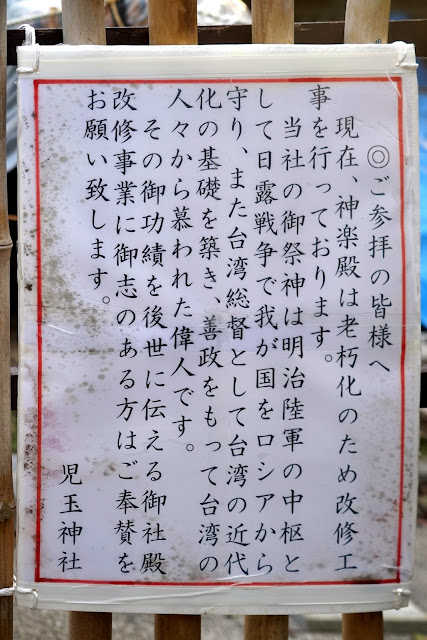 ◎ご参拝の皆様へ
現在、神楽殿は老朽化のため改修工
事を行っております。
当社の御祭神は明治陸軍の中枢と
して日露戦争で我が国をロシアから
守り、また台湾総督として台湾の近代
化の基礎を築き、善政をもって台湾の
人々から慕われた偉人です。
その御功績を後世に伝える御社殿
改修事業に御志のある方はご奉賛を
お願い致します。
児玉神社